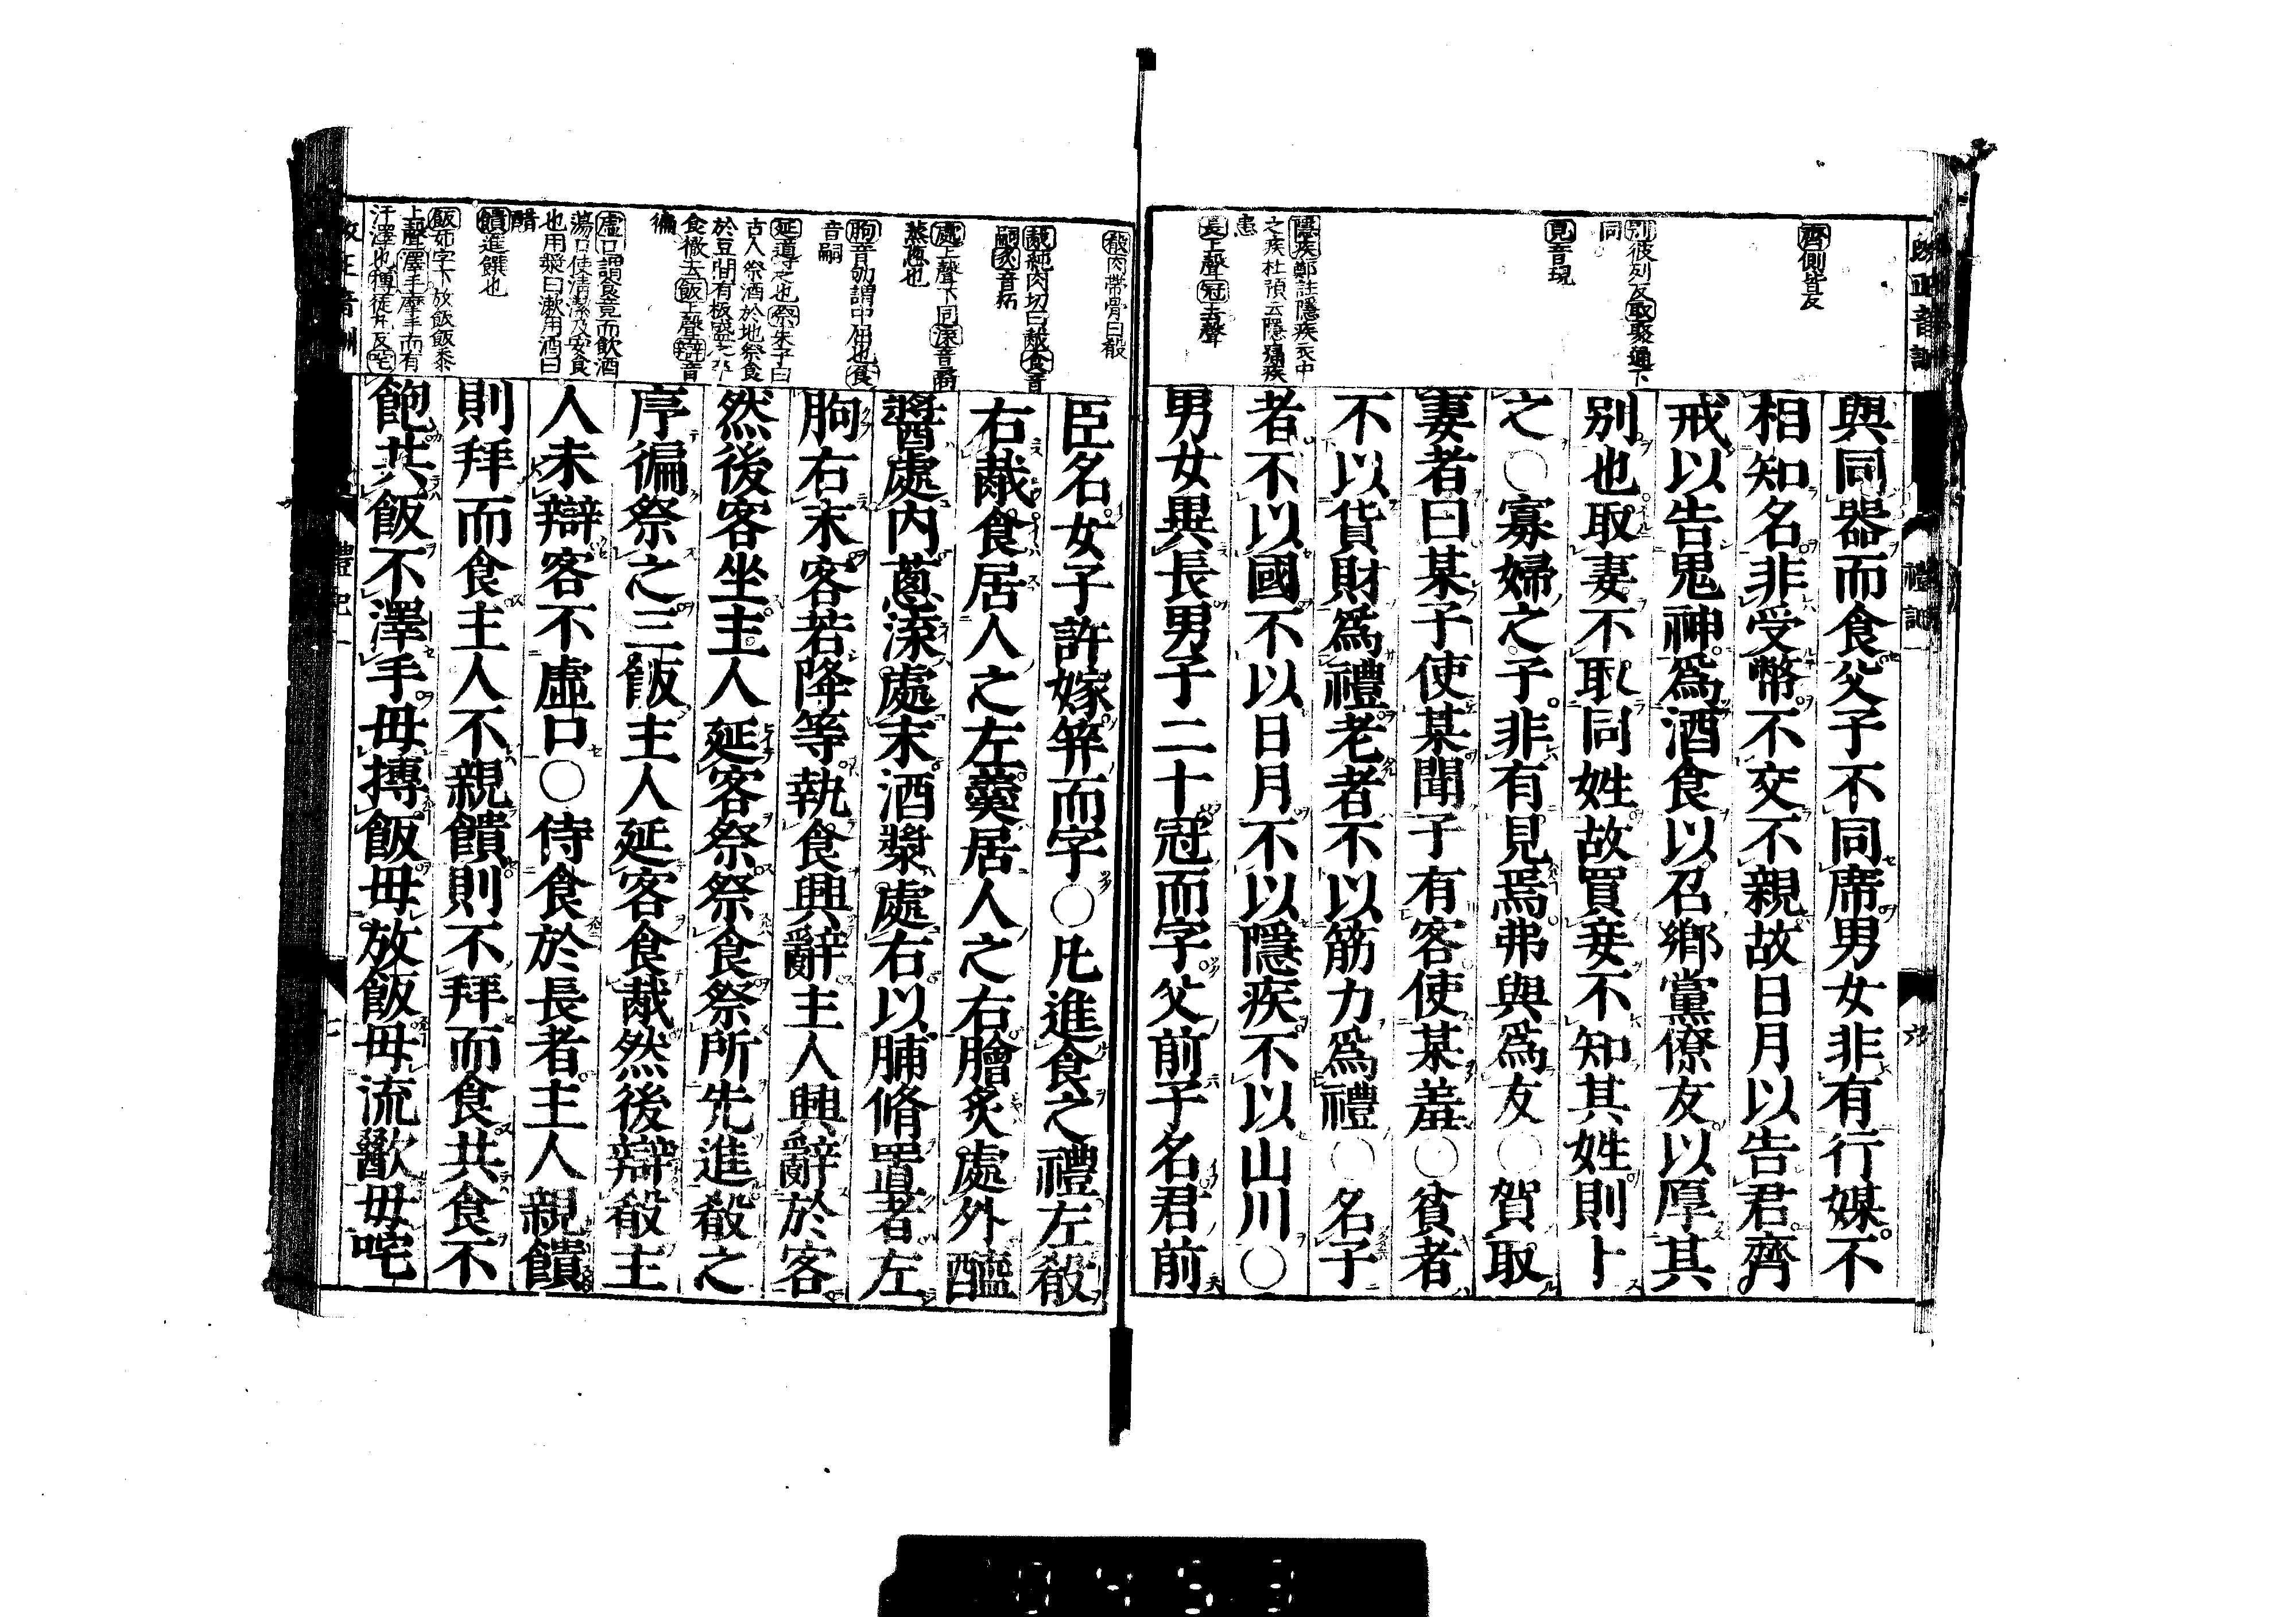 齊側皆反
別彼列反取娶通下
同
見音現
隱疾鄭註隱疾衣中
之疾杜預云隱痛疾
患
長上聲冠去聲
與同器而食父子不同席男女非有行媒不
相知名非受幣不交不親故日月以告君齊
戒以告鬼神爲酒食以召鄉黨僚友以厚其
别也取妻不取同姓故買妾不知其姓則卜
之○寡婦之子非有見焉弗與爲友○賀取
妻者曰某子使某聞子有客使某羞○貧者
不以貨財爲禮老者不以筋力爲禮○名子
者不以國不以日月不以隱疾不以山川○
男女異長男子二十冠而字父前子名君前
禮記一
六
殽肉帶骨曰殽
胾純肉切曰胾食音
嗣炙音柘
處上聲下同渫音
蒸葱也
朐音劬謂中屈也食
音嗣
延道之也祭朱子曰
古人祭酒於地祭食
於豆間有板盛之卒
食徹去飯上聲辯音
徧
虛口謂食竟而飲酒
蕩口使淸潔及安食
也用漿曰漱用酒曰
酳
饋進饌也
飯如字下放飯飯黍
上聲澤手摩手而有
汗澤也摶徒丸反咤
臣名女子許嫁笄而字○凡進食之禮左殽
右胾食居人之左羹居人之右膾炙處外醯
醬處内蔥渫處末酒漿處右以脯脩置者左
朐右末客若降等執食興辭主人興辭於客
然後客坐主人延客祭祭食祭所先進殽之
序徧祭之三飯主人延客食胾然後辯殽主
人未辯客不虛口○侍食於長者主人親饋
則拜而食主人不親饋則不拜而食共食不
飽共飯不澤手毋摶飯毋放飯毋流歠毋咤
禮記一
七